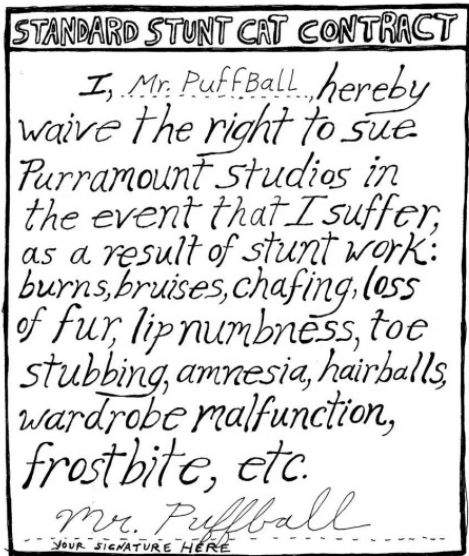 STANDARD STUNT CAT CONTRACT
I, Mr. PuffBall, hereby
waive the right to sue
Purramount Studios in
the event that I suffer,
as a result of stunt work:
burns, bruises, chafing, loss
of fur, lip numbness, toe
stubbing, amnesia, hairballs,
wardrobe malfunction,
frostbite, etc.
Mr. Puffball
YOUR SIGNATURE HERE